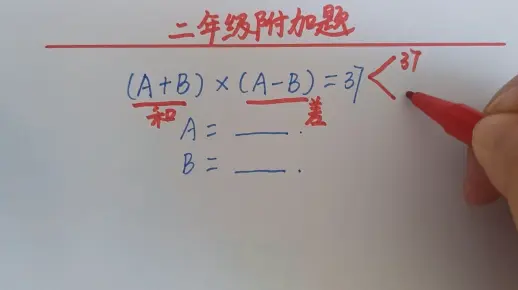 二年级附加题
(A+B)×(A-B)=37 37
和 差
A= ___.
B= ___.